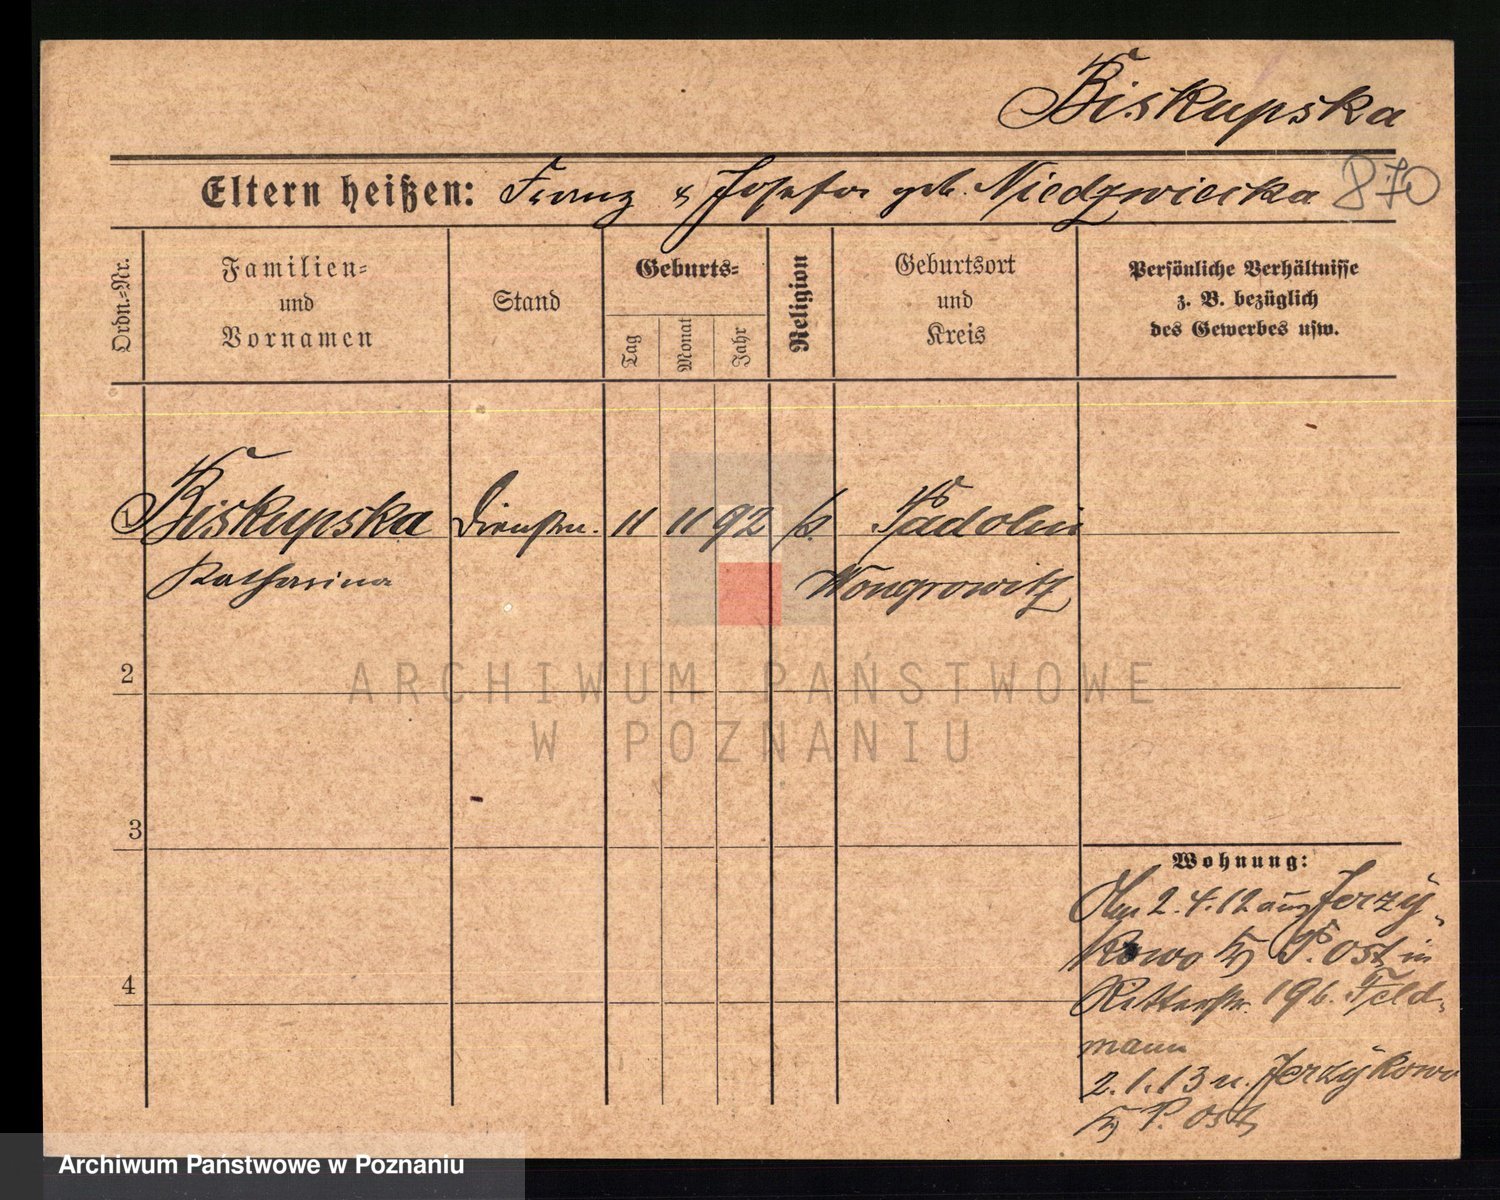 Biskupska
Eltern heißen: Franz & Josefa geb. Niedzwiecka 870
Ordn.=Nr.
Familien=
und
Vornamen
Stand
Geburts=
Tag
Monat
Jahr
Religion
Geburtsort
und
Kreis
Persönliche Verhältnisse
z. B. bezüglich
des Gewerbes usw.
1 Biskupska Dienstm. 11 11 92 k. Padolin
Katharina Wongrowitz
2
ARCHIWUM PAŃSTWOWE
W POZNANIU
3
4
Wohnung:
Am 2.4.12 aus Jerzy
kowo Kr P. Ost in
Ritterstr. 19 b. Feld
mann
2.1.13 n. Jerzykowo
Kr P. Ost
Archiwum Państwowe w Poznaniu